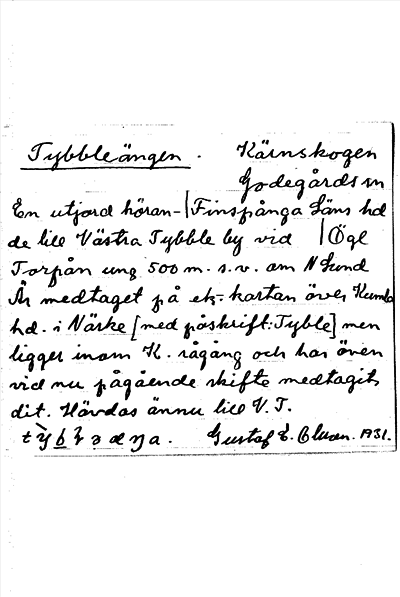 Tybbleängen. Kärnskogen
Godegårds sn
En utjord höran- | Finspånga Läns hd
de till Västra Tybble by vid | Ögl
Torpån ung 500 m. s.v. om N Lund
Är medtaget på ek.-kartan över Kumla
hd. i Närke [med påskrift: Tyble] men
ligger inom K. rågång och har även
vid nu pågående skifte medtagits
dit. Hävdas ännu till V. T.
Gustaf E. 1931.